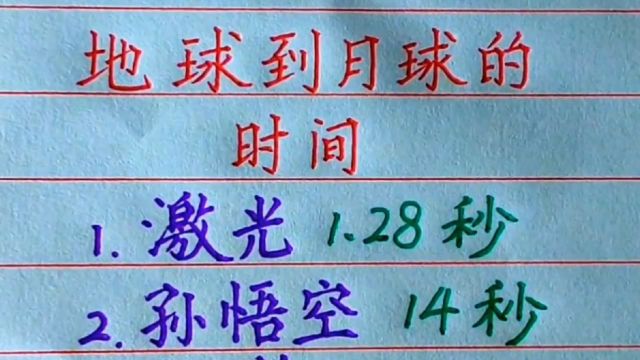 地球到月球的
时间
1. 激光 1.28秒
2. 孙悟空 14秒